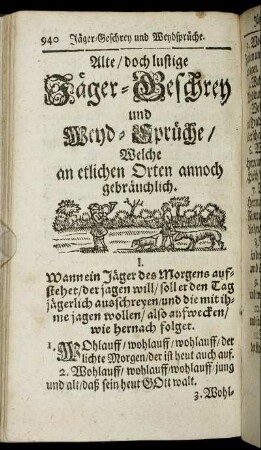 940 Jäger-Geschrey und Weydsprüche.
Alte / doch lustige
Jäger-Geschrey
und
Weyd-Sprüche /
Welche
an etlichen Orten annoch
gebräuchlich.
I.
Wann ein Jäger des Morgens auf-
stehet / der jagen will / soll er den Tag
jägerlich ausschreyen / und die mit ih-
me jagen wollen / also aufwecken /
wie hernach folget.
1. WOhlauff / wohlauff / wohlauff / der
lichte Morgen / der ist heut auch auf.
2. Wohlauff / wohlauff / wohlauff / jung
und alt / daß sein heut GOtt walt.
3. Wohl-